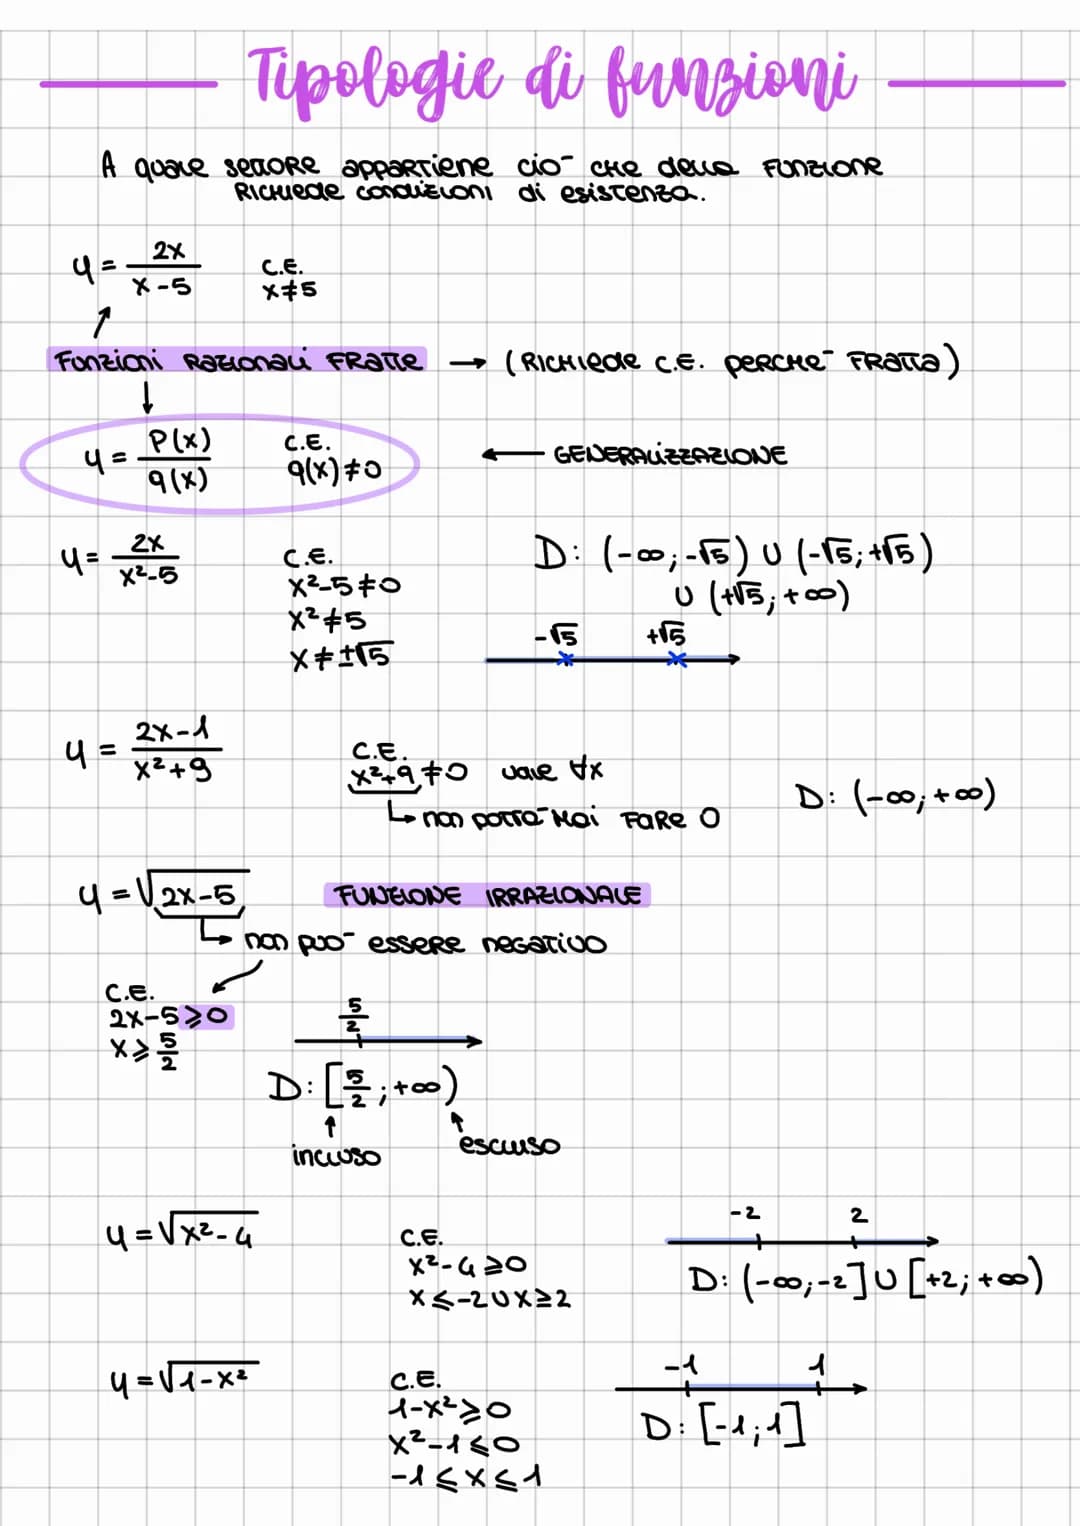 Tipologie di funzioni
A quale settore appartiene ciò che della funzione
richiede condizioni di esistenza.
y = 2x / x-5    C.E. x≠5
Funzioni razionali fratte → (richiede C.E. perché fratta)
y = P(x) / q(x)    C.E. q(x)≠0    ← GENERALIZZAZIONE
y = 2x / x²-5    C.E.
x²-5≠0
x²≠5
x≠±√5
D: (-∞;-√5) U (-√5;+√5)
U (+√5;+∞)
-√5    +√5
y = 2x-1 / x²+9    C.E.
x²+9≠0 vale ∀x
↳ non potrà mai fare 0
D: (-∞;+∞)
y = √2x-5    FUNZIONE IRRAZIONALE
↳ non può essere negativo
C.E.
2x-5⩾0
x⩾5/2
5/2
D: [5/2;+∞)
↑ incluso    ↑ escluso
y = √x²-4    C.E.
x²-4⩾0
x⩽-2 U x≥2
-2    2
D: (-∞;-2] U [+2;+∞)
y = √1-x²    C.E.
1-x²⩾0
x²-1⩽0
-1⩽x⩽1
-1    1
D: [-1;1]